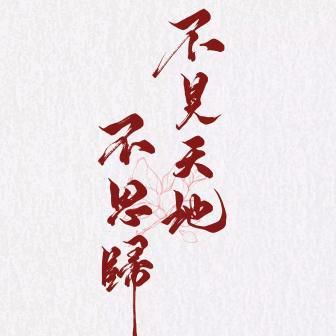 不見天地
不思歸